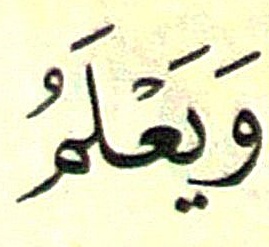 وَيَعْلَمُ